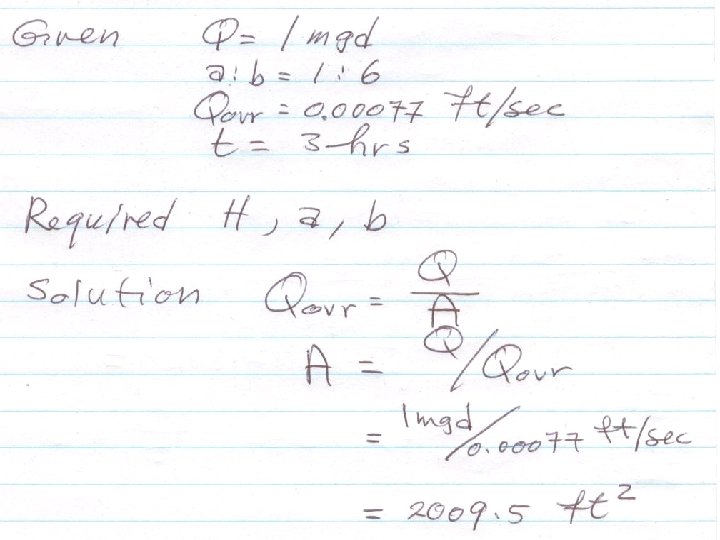 Given Q = 1 mgd
a:b = 1:6
Qovr = 0.00077 ft/sec
t = 3 hrs
Required H, a, b
Solution Qovr = Q/A
A = Q/Qovr
= 1mgd/0.00077 ft/sec
= 2009.5 ft²